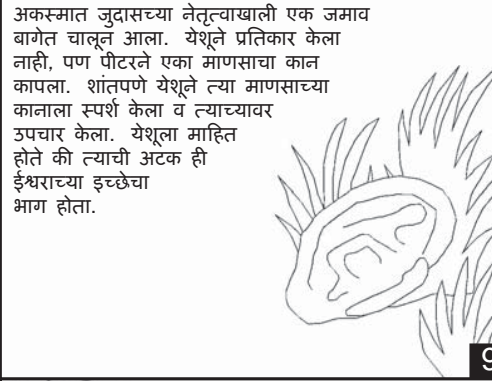 अकस्मात जुदासच्या नेतृत्वाखाली एक जमाव
बागेत चालून आला. येशूने प्रतिकार केला
नाही, पण पीटरने एका माणसाचा कान
कापला. शांतपणे येशूने त्या माणसाच्या
कानाला स्पर्श केला व त्याच्यावर
उपचार केला. येशूला माहित
होते की त्याची अटक ही
ईश्वराच्या इच्छेचा
भाग होता.
9